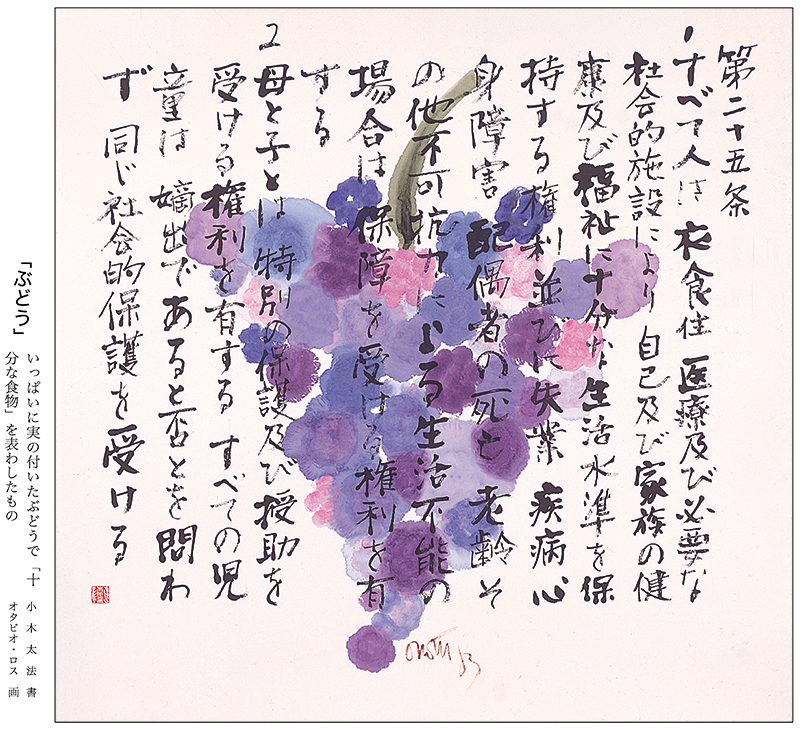 第二十五条
1 すべて人は 衣食住 医療及び必要な
社会的施設により 自己及び家族の健
康及び福祉に十分な生活水準を保
持する権利並びに失業 疾病 心
身障害 配偶者の死亡 老齢 そ
の他不可抗力による生活不能の
場合は 保障を受ける権利を有
する
2 母と子とは特別の保護及び援助を
受ける権利を有する すべての児
童は 嫡出であると否とを問わ
ず 同じ社会的保護を受ける
「ぶどう」
いっぱいに実の付いたぶどうで「十
分な食物」を表わしたもの
小木太法 書
オタビオ・ロス 画